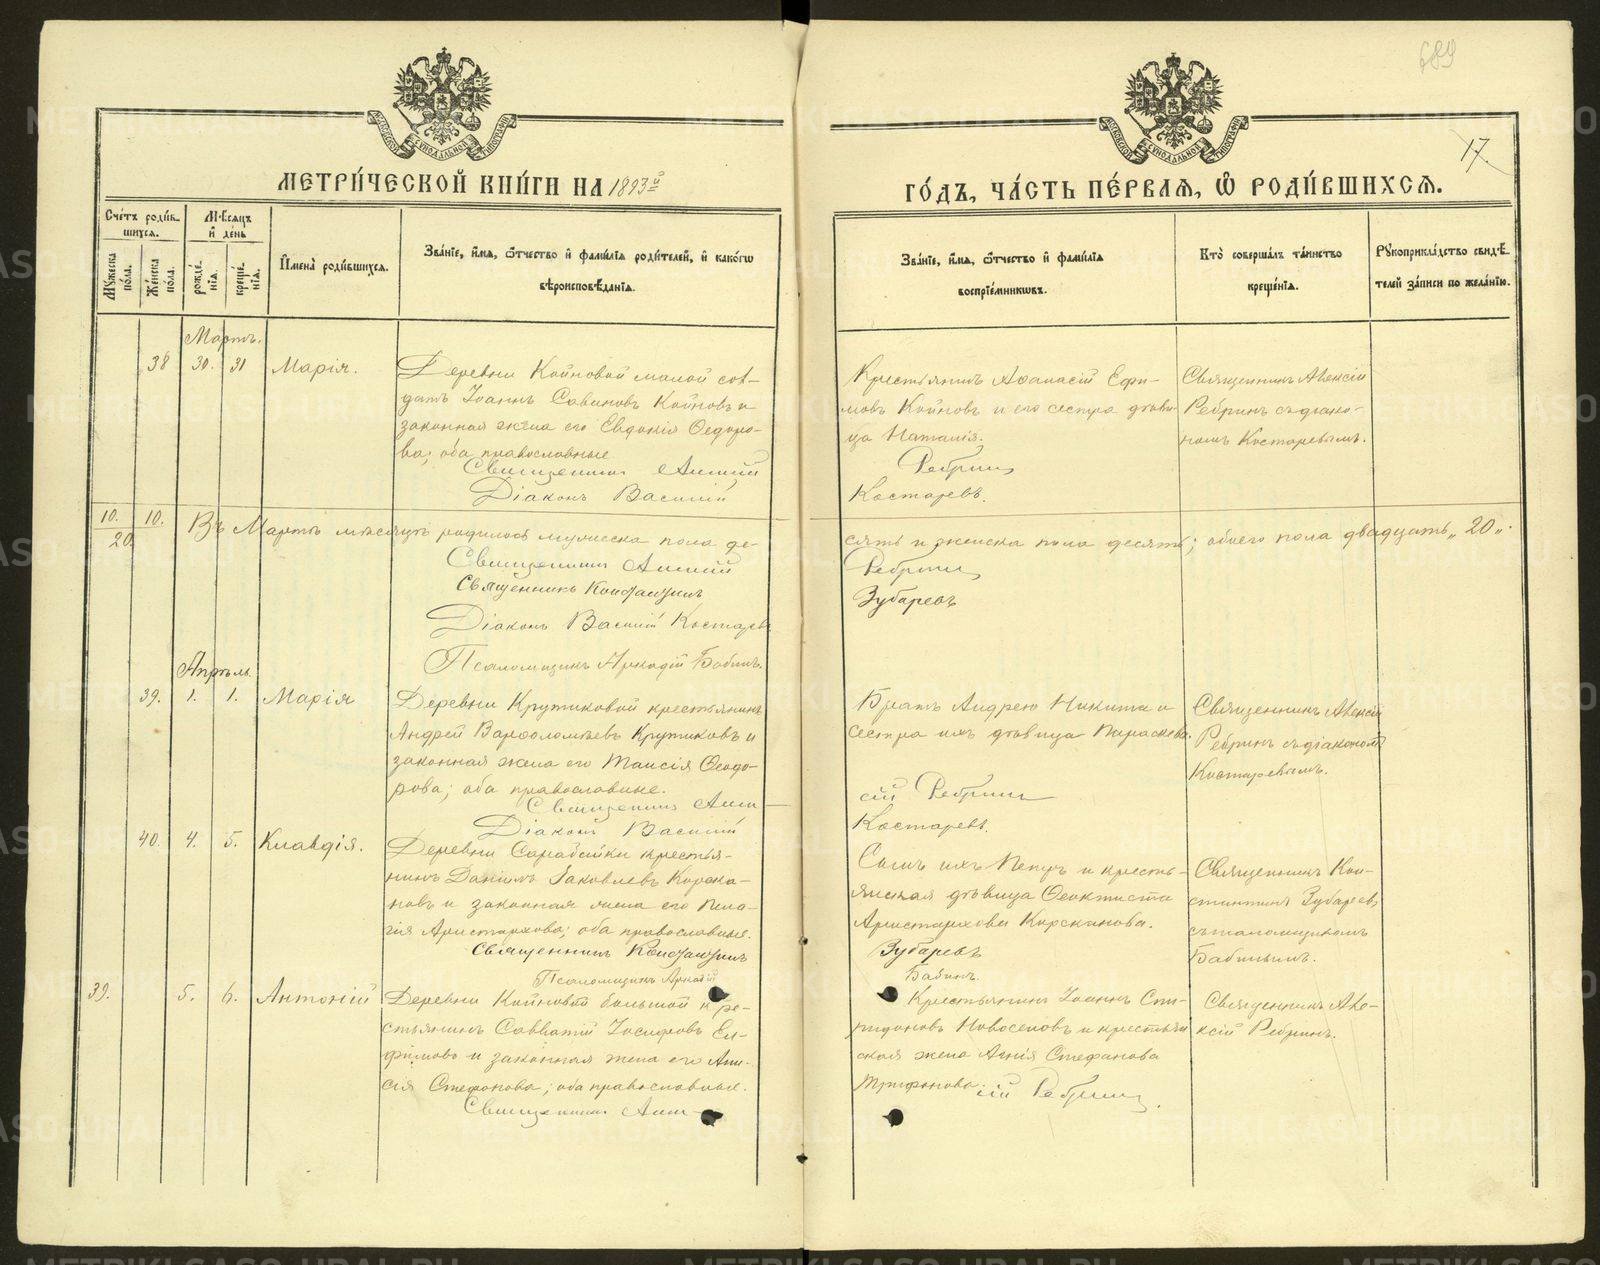 689
17.
МЕТРИ́ЧЕСКОЙ КНИ́ГИ НА 1893й
ГО́ДЪ, ЧА́СТЬ ПЕ́РВАЯ, Ѿ РОДИ́ВШИХСЯ.
Сче́тъ роди́в-
шихся.
Мѣсяцъ
и де́нь
Му́жеска по́ла.
Же́нска по́ла.
рожде́-
нія.
креще́-
нія.
Имена̀ роди́вшихся.
Зва́ніе, и́мя, ѻтчество и фами́лія роди́телей, и како́гѡ
вѣроисповѣданія.
Зва́ніе, и́мя, ѻтчество и фами́лія
воспріе́мникѡвъ.
Кто̀ соверша́лъ та́инство
креще́нія.
Рукоприкла́дство свидѣ-
телей за́писи по жела́нію.
Мартъ.
38 30. 31 Марія.
Деревни Койновой малой сол-
датъ Іоаннъ Савиновъ Койновъ и
законная жена его Евдокія Ѳедоро-
ва; оба православные
Священникъ Алексій
Діаконъ Василій
Крестьянинъ Аѳанасій Ефи-
мовъ Койновъ и его сестра дѣви-
ца Наталія.
Ребринъ
Костаревъ.
Священникъ Алексій
Ребринъ съ діако-
номъ Костаревымъ.
10. 10.
20.
Въ Мартѣ мѣсяцѣ родилось мужеска пола де-
сять и женска пола десять; обоего пола двадцать „20„.
Священникъ Алексій
Ребринъ
Священникъ Константинъ
Зубаревъ
Діаконъ Василій Костаревъ
Псаломщикъ Аркадій Бабинъ.
Апрѣль
39. 1. 1. Марія
Деревни Крутиковой крестьянинъ
Андрей Варѳоломѣевъ Крутиковъ и
законная жена его Таисія Ѳеодо-
рова; оба православные.
Священникъ Алек-
Діаконъ Василій
Братъ Андрею Никита и
сестра ихъ дѣвица Параскева.
сій Ребринъ
Костаревъ.
Священникъ Алексій
Ребринъ съ діакономъ
Костаревымъ.
40. 4. 5. Клавдія.
Деревни Сарабайки крестья-
нинъ Даніилъ Іаковлевъ Корска-
новъ и законная жена его Пела-
гія Аристархова; оба православные.
Священникъ Константинъ
Псаломщикъ Аркадій
Сынъ ихъ Петръ и кресть-
янская дѣвица Ѳеоктиста
Аристархова Корсканова.
Зубаревъ
Бабинъ.
Священникъ Кон-
стантинъ Зубаревъ
съ псаломщикомъ
Бабинымъ.
39. 5. 6. Антоній
Деревни Койновой большой кре-
стьянинъ Савватій Іосифовъ Ел-
фимовъ и законная жена его Ани-
сія Стефанова; оба православные.
Священникъ Алек-
Крестьянинъ Іоаннъ Спи-
ридоновъ Новоселовъ и крестьян-
ская жена Агнія Стефанова
Трифонова.
сій Ребринъ.
Священникъ Але-
ксій Ребринъ.